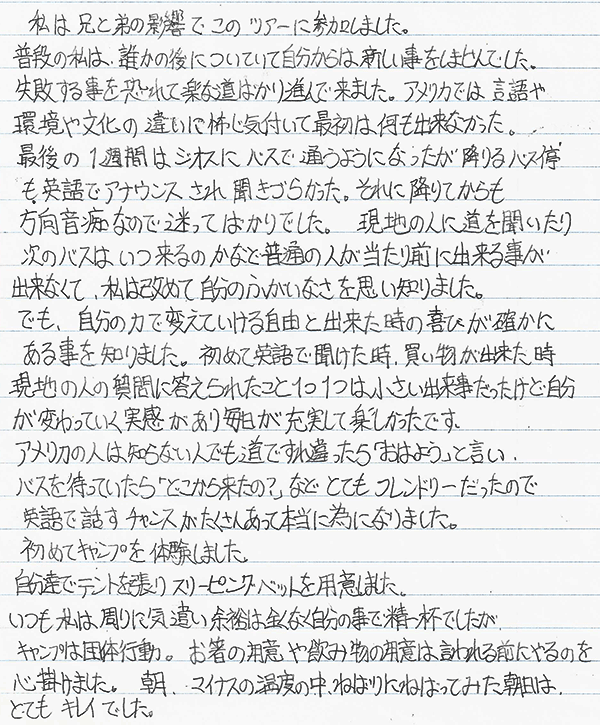 私は兄と弟の影響でこのツアーに参加しました。
普段の私は、誰かの後についていて自分からは、新しい事をしませんでした。
失敗する事を恐れて楽な道ばかり進んで来ました。アメリカでは言語や
環境や文化の違いに怖じ気付いて最初は何も出来なかった。
最後の1週間はジオスにバスで通うようになったが降りるバス停
も英語でアナウンスされ聞きづらかった。それに降りてからも
方向音痴なので迷ってばかりでした。現地の人に道を聞いたり
次のバスはいつ来るのかなど普通の人が当たり前に出来る事が
出来なくて、私は改めて自分のふがいなさを思い知りました。
でも、自分の力で変えていける自由と出来た時の喜びが確かに
ある事を知りました。初めて英語で聞けた時、買い物が出来た時
現地の人の質問に答えられたこと1つ1つは、小さい出来事だったけど自分
が変わっていく実感があり毎日が充実して楽しかったです。
アメリカの人は知らない人でも道ですれ違ったら「おはよう」と言い、
バスを待っていたら「どこから来たの?」などとてもフレンドリーだったので
英語で話すチャンスがたくさんあって本当に為になりました。
初めてキャンプを体験しました。
自分達でテントを張りスリーピングベットを用意しました。
いつも私は周りに気遣い余裕は全くなく自分の事で精一杯でしたが、
キャンプは団体行動。お箸の用意や飲み物の用意は言われる前にやるのを
心掛けました。朝、マイナスの温度の中、ねばりにねばってみた朝日は、
とてもキレイでした。